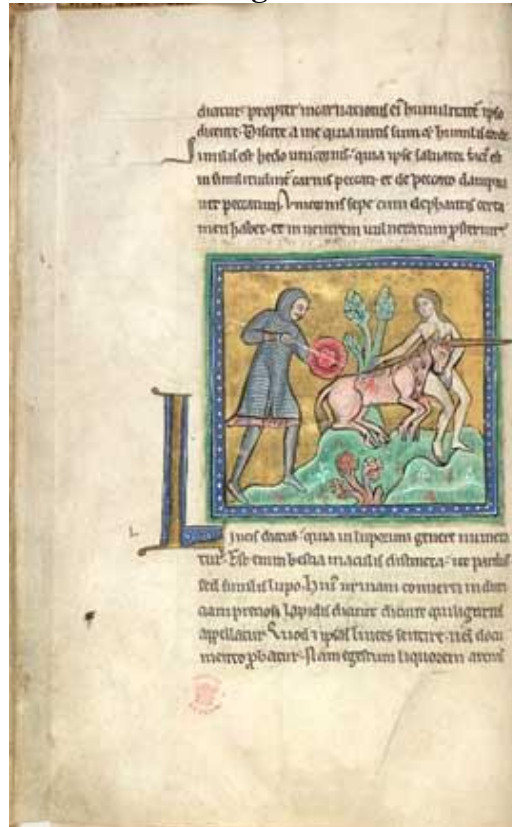 dicatur propter incarnationis ei humilitatē ipso
dicente. Discite a me quia mitis sum & humilis corde
similis est hedo unicornis quia ipse saluator fact̄ est
in similitudinē carnis peccati et de peccato dampna
uit peccatum. Vnicornis sepe cum elephantis certa
men habet et in uentrem uulneratum ꝓsternit
L
L incis dictus quia in luporum genere numera
tur. Est enim bestia maculis distincta ut pardus
sed similis lupo. urinam conuerti in duri
ciam preciosi lapidis dicunt qui ligurius
appellatur. Quod & ipsas linces sentire hoc docu
mento ꝓbatur. Nam egestum liquorem arenis